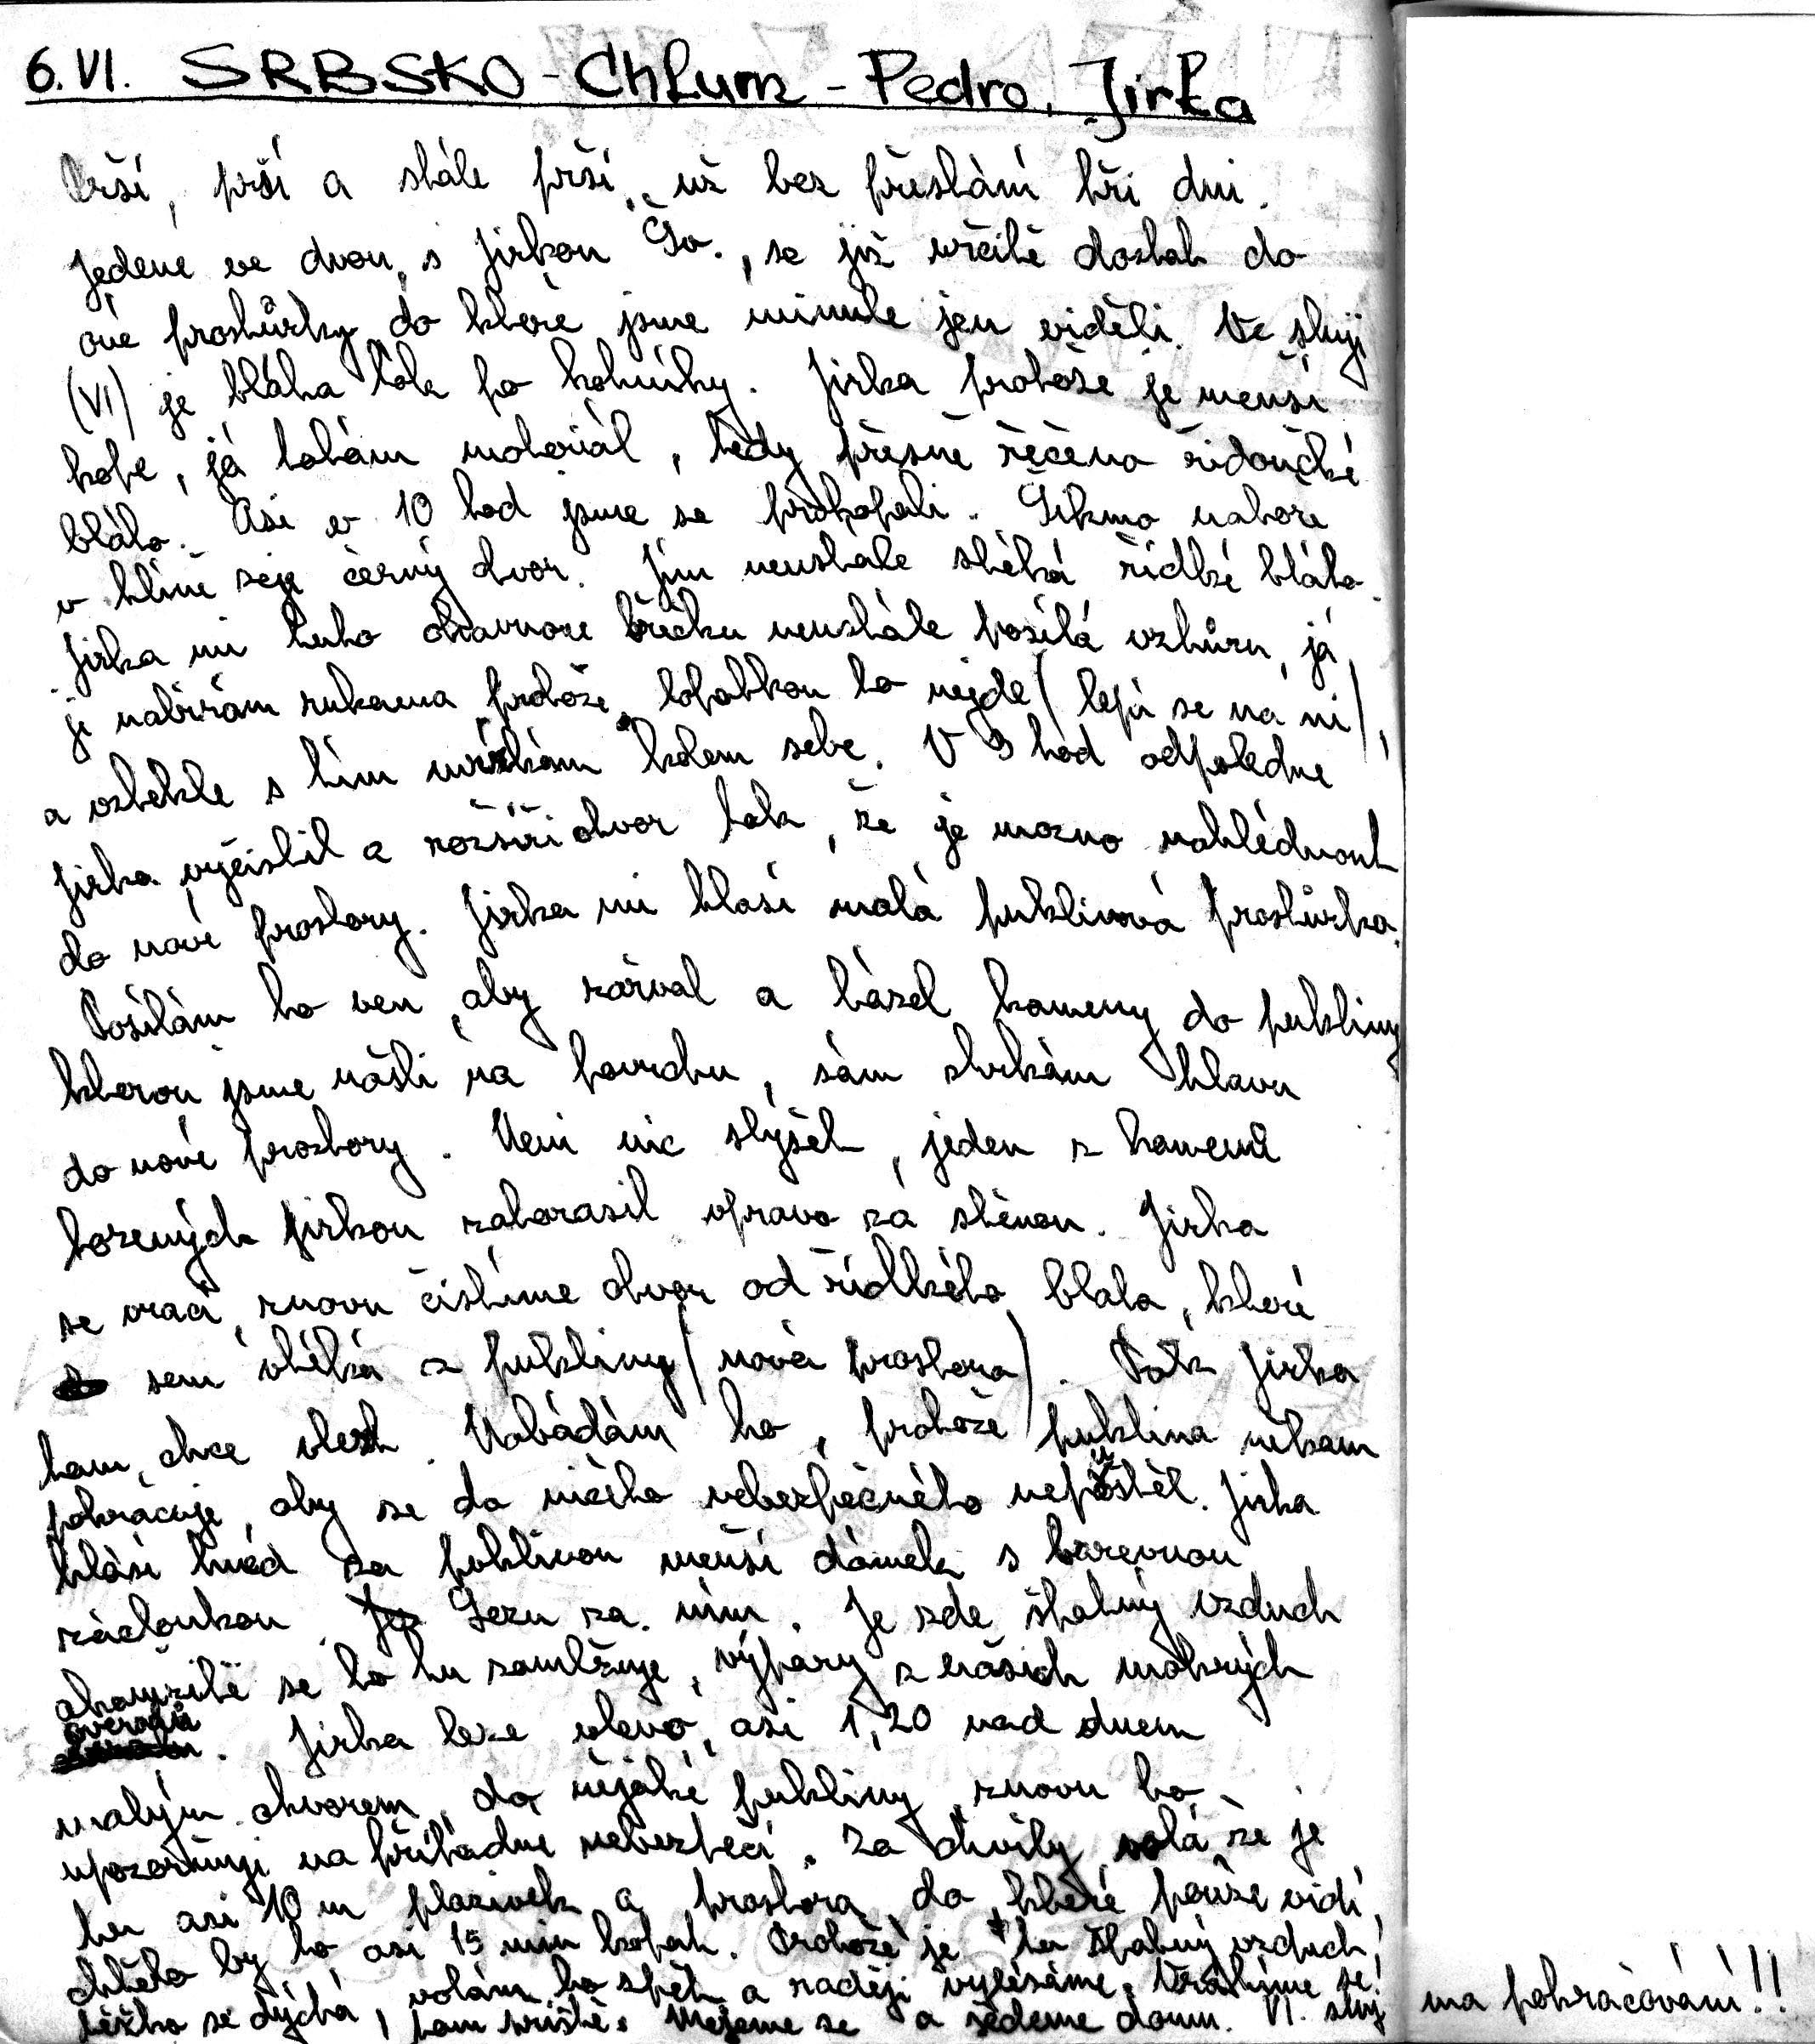 6.VI. SRBSKO - Chlum - Pedro, Jirka
Prší, prší a stále prší, už bez přestání tři dni.
Jedeme ve dvou, s Jirkou Šv., se již určitě dostat do
oné prostůrky do které jsme minule jen viděli. Ve sluji
(VI) je bláta tak po kotníky. Jirka protože je menší
kope, já tahám materiál, tedy přesně řečeno řidoučké
bláto. Asi v 10 hod jsme se prokopali. Šikmo nahoře
v hlíně zeje černý otvor. Jím neustále stéká řídké bláto.
Jirka mi tuto břečku neustále posílá vzhůru, já
ji nabírám rukama protože lopatkou to nejde (lepí se na ni),
a vztekle s tím mrskám kolem sebe. V 3 hod odpoledne
Jirka vyčistil a rozšíři otvor tak, že je možno nahlédnout
do nové prostory. Jirka mi hlásí malá puklinová prostůrka.
Posílám ho ven, aby zařval a házel kameny do pukliny
kterou jsme našli na povrchu, sám strkám hlavu
do nové prostory. Není nic slyšet, jeden z kamenů
hozených Jirkou zaharasil vpravo za stěnou. Jirka
se vrací, znovu čistíme otvor od řídkého bláta, které
sem vtéká z pukliny (nová prostora). Pak Jirka
tam chce vlézt. Nabádám ho, protože puklina někam
pokračuje, aby se do ničeho nebezpečného nepouštěl. Jirka
hlásí hned za puklinou menší dómek s barevnou
záclonkou. Lezu za ním. Je zde špatný vzduch
okamžitě se to tu zamlžuje, výpary z našich mokrých
overalů. Jirka leze vlevo, asi 1,20 nad dnem
malým otvorem, do nějaké pukliny, znovu ho
upozorňuji na případné nebezpečí. Za chvíly volá, že je
tu asi 10 m plazivek a prostora do které pouze vidí,
chtělo by to asi 15 min kopat. Protože je tu špatný vzduch,
těžko se dýchá, volám ho zpět a raději vylézáme. Vrátíme se
sem příště. Myjeme se a jedeme domu. VI. sluj má pokračování!!